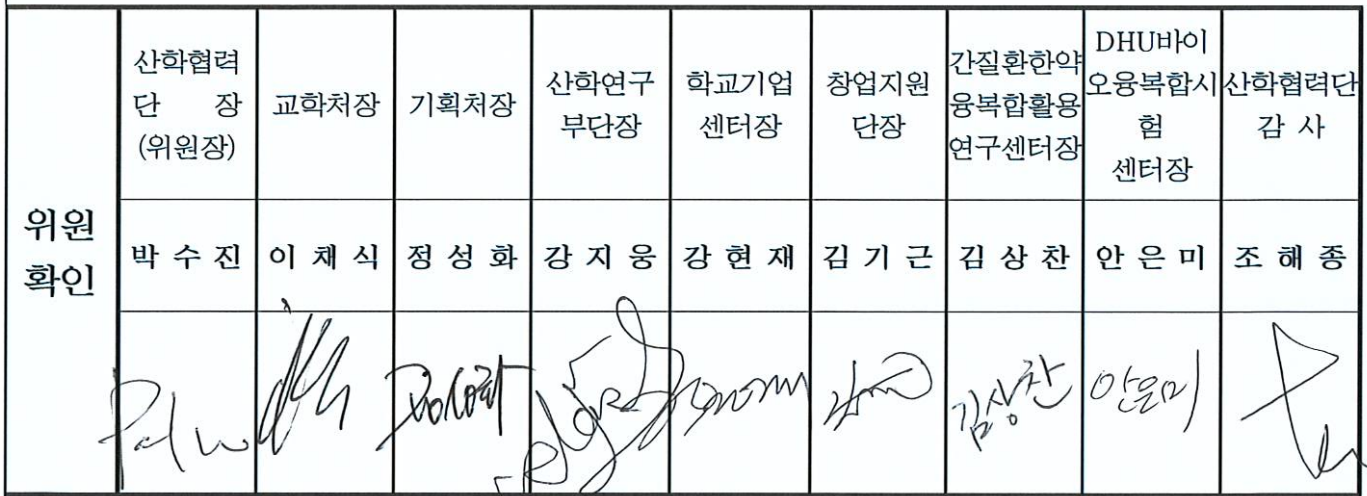 위원
확인
산학협력
단 장
(위원장)
교학처장
기획처장
산학연구
부단장
학교기업
센터장
창업지원
단장
간질환한약
융복합활용
연구센터장
DHU바이
오융복합시
험
센터장
산학협력단
감 사
박 수 진
이 채 식
정 성 화
강 지 웅
강 현 재
김 기 근
김 상 찬
안 은 미
조 해 종
김상찬
안은미